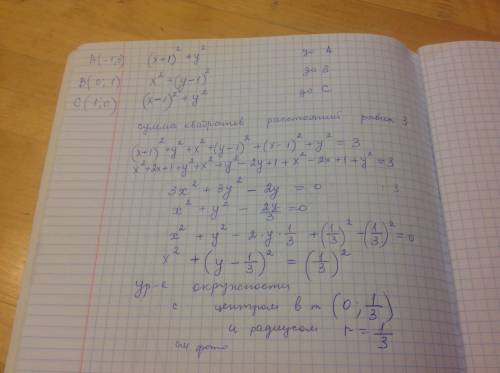 A(-1;0) (x+1)² + y² до A
B(0; 1) x² + (y-1)² до B
C(1; 0) (x-1)² + y² до C
сумма квадратов расстояний равна 3
(x+1)² + y² + x² + (y-1)² + (x-1)² + y² = 3
x² + 2x + 1 + y² + x² + y² - 2y + 1 + x² - 2x + 1 + y² = 3
3x² + 3y² - 2y = 0
x² + y² - 2y/3 = 0
x² + y² - 2·y·1/3 + (1/3)² - (1/3)² = 0
x² + (y - 1/3)² = (1/3)²
ур-е окружности
с центром в т (0; 1/3)
и радиусом r = 1/3
см фото